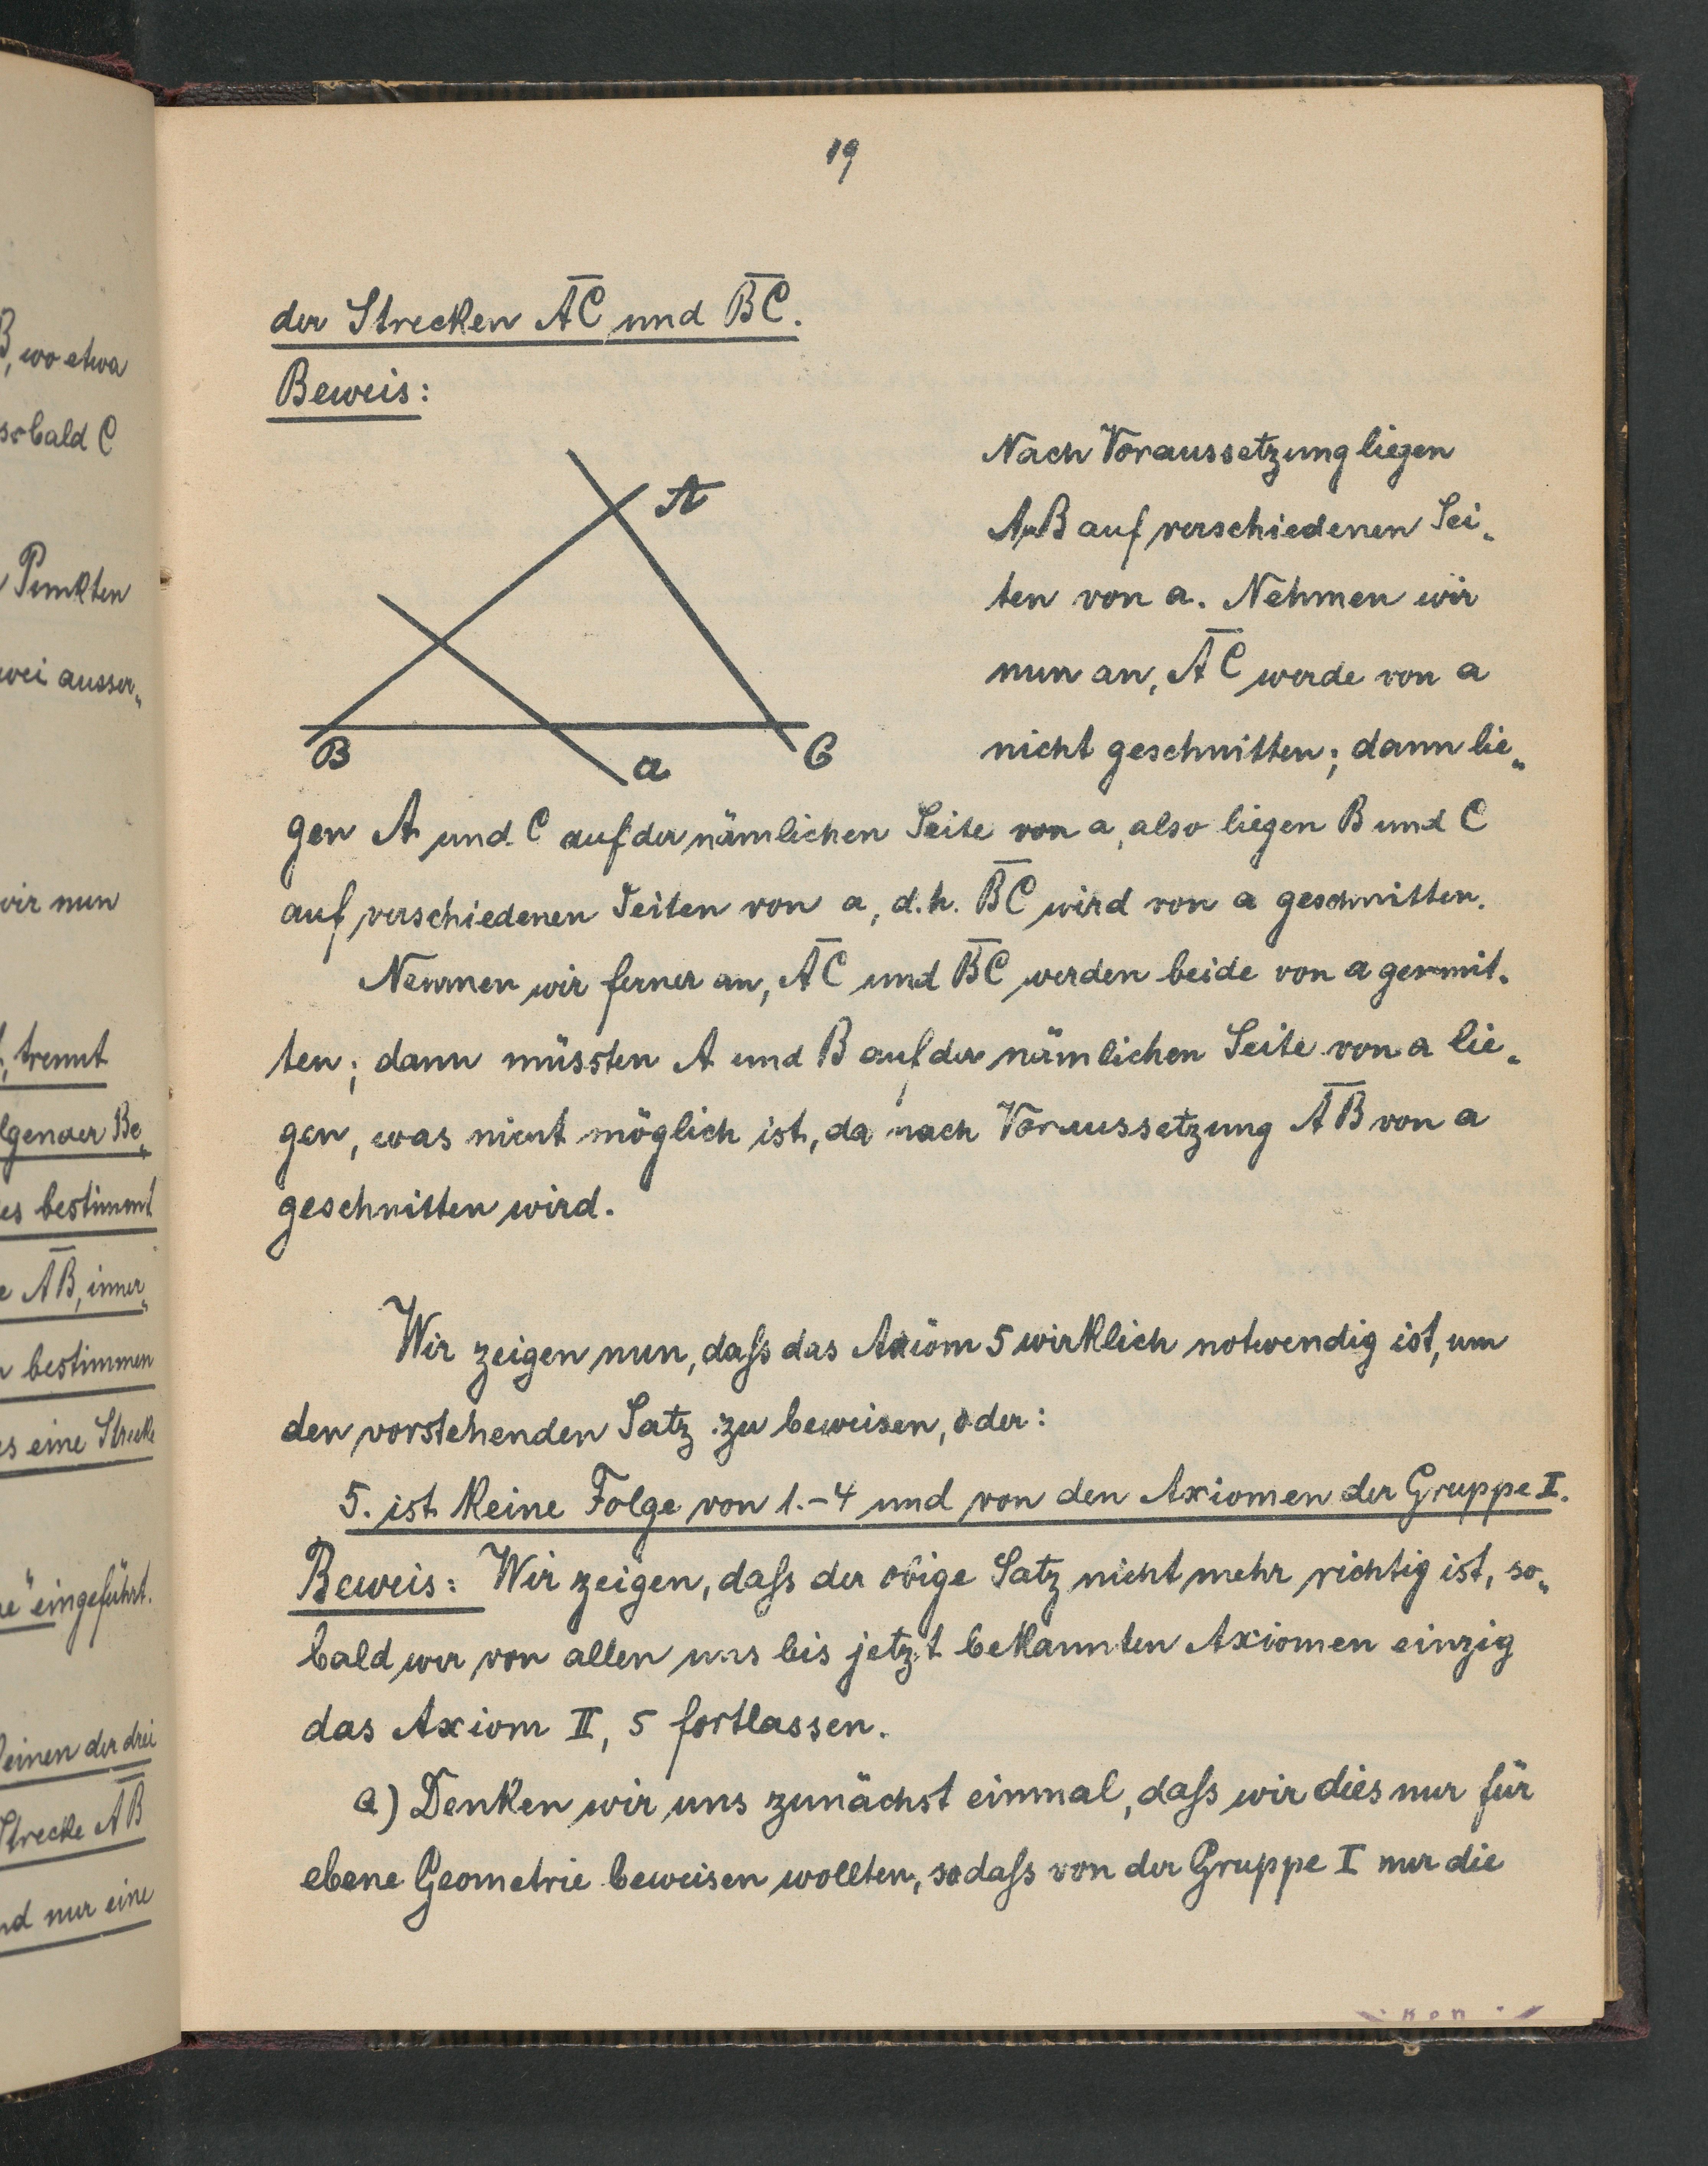 19
der Strecken A̅C̅ und B̅C̅.
Beweis:
A
B
a
C
Nach Voraussetzung liegen
A u B auf verschiedenen Sei„
ten von a. Nehmen wir
nun an, A̅C̅ werde von a
nicht geschnitten; dann lie„
gen A und C auf der nämlichen Seite von a, also liegen B und C
auf verschiedenen Seiten von a, d.h. B̅C̅ wird von a geschnitten.
Nehmen wir ferner an, A̅C̅ und B̅C̅ werden beide von a geschnit„
ten; dann müssten A und B auf der nämlichen Seite von a lie„
gen, was nicht möglich ist, da nach Voraussetzung A̅B̅ von a
geschnitten wird.
Wir zeigen nun, daſs das Axiom 5 wirklich notwendig ist, um
den vorstehenden Satz zu beweisen, oder:
5. ist keine Folge von 1.-4 und von den Axiomen der Gruppe I.
Beweis: Wir zeigen, daſs der obige Satz nicht mehr richtig ist, so„
bald wir von allen uns bis jetzt bekannten Axiomen einzig
das Axiom II, 5 fortlassen.
a) Denken wir uns zunächst einmal, daſs wir dies nur für
ebene Geometrie beweisen wollten, sodaſs von der Gruppe I nur die
B, wo etwa
sobald C
Punkten
zwei ausser„
wir nun
trennt
folgender Be„
es bestimmt
A̅B̅, inner„
bestimmen
es eine Strecke
" eingeführt.
einen der drei
Strecke A̅B̅
und nur eine